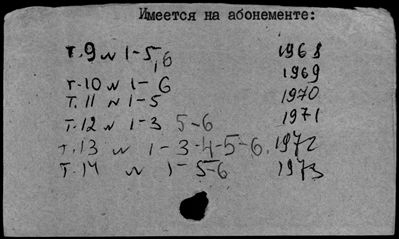 Имеется на абонементе:
т.9 № 1-5,6 1968
т.10 № 1- 6 1969
Т.11 № 1-5 1970
Т.12 № 1-3 5-6 1971
т.13 № 1-3-4-5-6. 1972
Т.14 № 1-5-6 1973